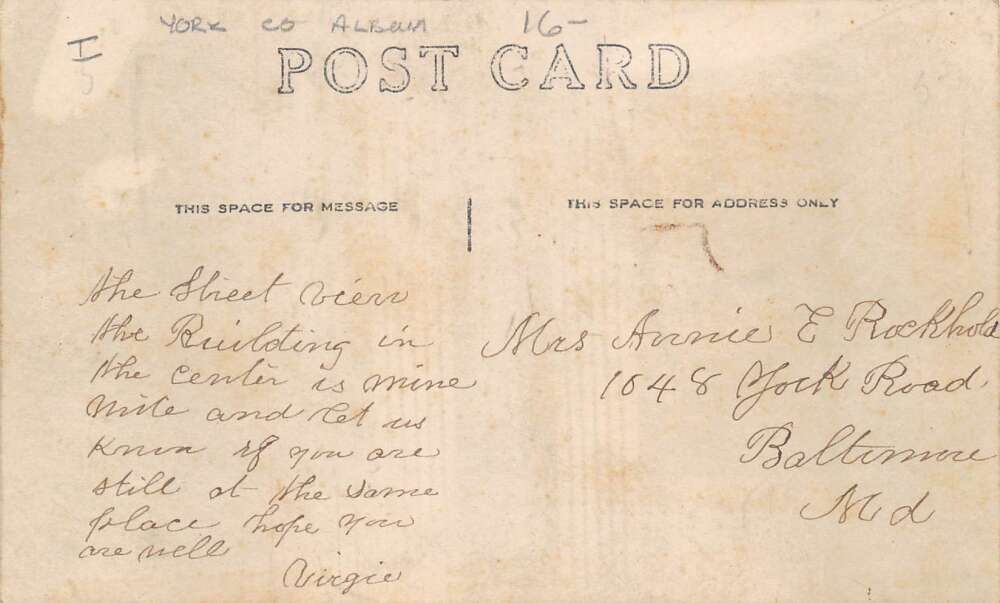 YORK CO ALBUM 16-
I
5
POST CARD
THIS SPACE FOR MESSAGE
THIS SPACE FOR ADDRESS ONLY
the Street view
the Building in
the center is mine
write and let us
know if you are
still at the same
place hope you
are well
Virgie
Mrs Annie E Rockhold
1048 York Road
Baltimore
Md